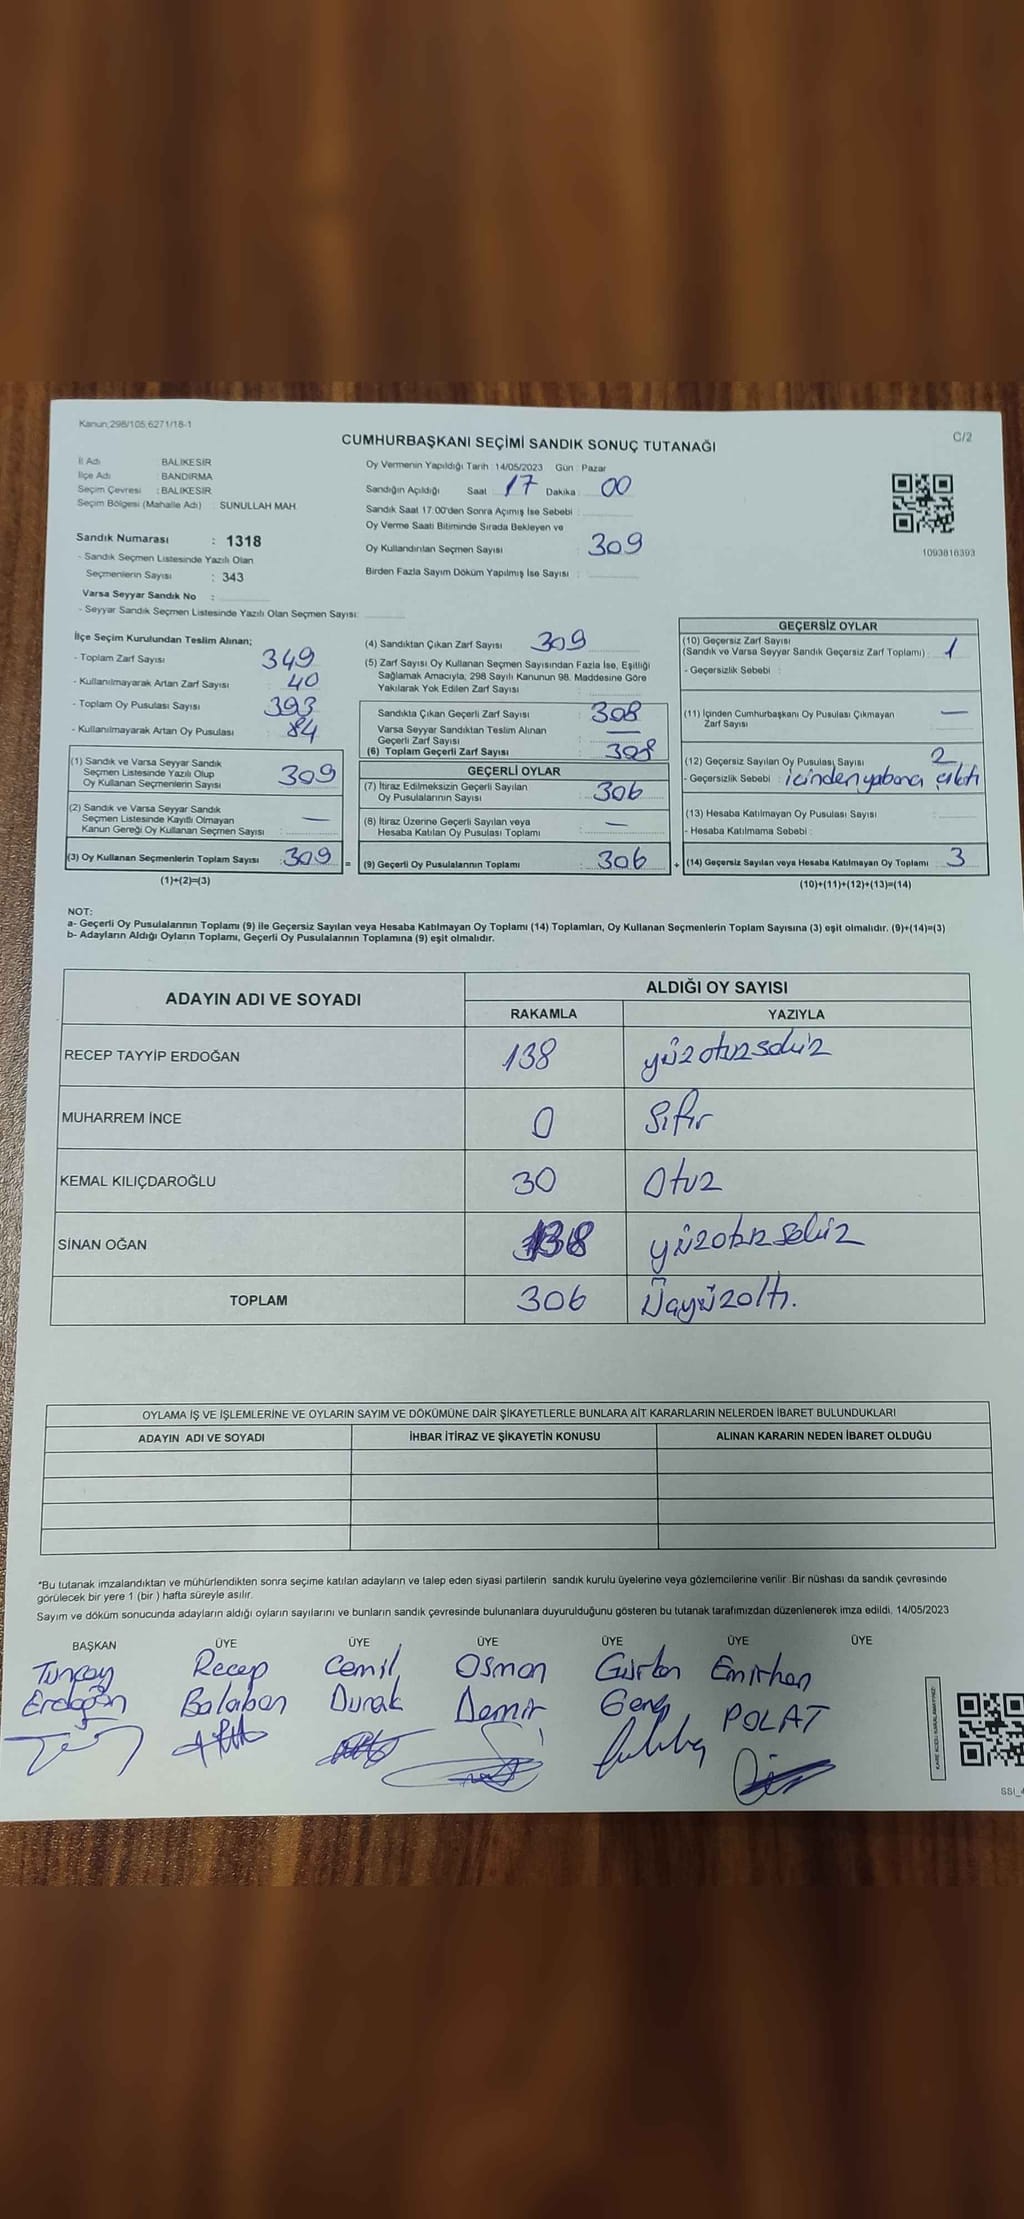 Kanun;298/105,6271/18-1
C/2
CUMHURBAŞKANI SEÇİMİ SANDIK SONUÇ TUTANAĞI
İl Adı BALIKESİR
İlçe Adı : BANDIRMA
Seçim Çevresi : BALIKESİR
Seçim Bölgesi (Mahalle Adı) : SUNULLAH MAH.
Sandık Numarası : 1318
- Sandık Seçmen Listesinde Yazılı Olan
Seçmenlerin Sayısı : 343
Varsa Seyyar Sandık No :
- Seyyar Sandık Seçmen Listesinde Yazılı Olan Seçmen Sayısı:
Oy Vermenin Yapıldığı Tarih : 14/05/2023 Gün : Pazar
Sandığın Açıldığı Saat : 17 Dakika : 00
Sandık Saat 17.00'den Sonra Açımış İse Sebebi :
Oy Verme Saati Bitiminde Sırada Bekleyen ve
Oy Kullandırılan Seçmen Sayısı : 309
Birden Fazla Sayım Döküm Yapılmış İse Sayısı :
1093816393
İlçe Seçim Kurulundan Teslim Alınan;
- Toplam Zarf Sayısı : 349
- Kullanılmayarak Artan Zarf Sayısı : 40
- Toplam Oy Pusulası Sayısı : 393
- Kullanılmayarak Artan Oy Pusulası : 84
(1) Sandık ve Varsa Seyyar Sandık
Seçmen Listesinde Yazılı Olup
Oy Kullanan Seçmenlerin Sayısı : 309
(2) Sandık ve Varsa Seyyar Sandık
Seçmen Listesinde Kayıtlı Olmayan
Kanun Gereği Oy Kullanan Seçmen Sayısı : —
(3) Oy Kullanan Seçmenlerin Toplam Sayısı : 309 =
(1)+(2)=(3)
(4) Sandıktan Çıkan Zarf Sayısı : 309
(5) Zarf Sayısı Oy Kullanan Seçmen Sayısından Fazla İse, Eşitliği
Sağlamak Amacıyla, 298 Sayılı Kanunun 98. Maddesine Göre
Yakılarak Yok Edilen Zarf Sayısı :
Sandıkta Çıkan Geçerli Zarf Sayısı : 308
Varsa Seyyar Sandıktan Teslim Alınan
Geçerli Zarf Sayısı : —
(6) Toplam Geçerli Zarf Sayısı : 308
GEÇERLİ OYLAR
(7) İtiraz Edilmeksizin Geçerli Sayılan
Oy Pusulalarının Sayısı : 306
(8) İtiraz Üzerine Geçerli Sayılan veya
Hesaba Katılan Oy Pusulası Toplamı : —
(9) Geçerli Oy Pusulalarının Toplamı : 306 +
GEÇERSİZ OYLAR
(10) Geçersiz Zarf Sayısı
(Sandık ve Varsa Seyyar Sandık Geçersiz Zarf Toplamı) : 1
- Geçersizlik Sebebi :
(11) İçinden Cumhurbaşkanı Oy Pusulası Çıkmayan
Zarf Sayısı : —
(12) Geçersiz Sayılan Oy Pusulası Sayısı : 2
- Geçersizlik Sebebi : içinden yabancı çıktı
(13) Hesaba Katılmayan Oy Pusulası Sayısı :
- Hesaba Katılmama Sebebi :
(14) Geçersiz Sayılan veya Hesaba Katılmayan Oy Toplamı : 3
(10)+(11)+(12)+(13)=(14)
NOT:
a- Geçerli Oy Pusulalarının Toplamı (9) ile Geçersiz Sayılan veya Hesaba Katılmayan Oy Toplamı (14) Toplamları, Oy Kullanan Seçmenlerin Toplam Sayısına (3) eşit olmalıdır. (9)+(14)=(3)
b- Adayların Aldığı Oyların Toplamı, Geçerli Oy Pusulalarının Toplamına (9) eşit olmalıdır.
ADAYIN ADI VE SOYADI
ALDIĞI OY SAYISI
RAKAMLA YAZIYLA
RECEP TAYYİP ERDOĞAN 138 yüzotuzsekiz
MUHARREM İNCE 0 Sıfır
KEMAL KILIÇDAROĞLU 30 Otuz
SİNAN OĞAN 138 yüzotuzsekiz
TOPLAM 306 Üçyüzaltı.
OYLAMA İŞ VE İŞLEMLERİNE VE OYLARIN SAYIM VE DÖKÜMÜNE DAİR ŞİKAYETLERLE BUNLARA AİT KARARLARIN NELERDEN İBARET BULUNDUKLARI
ADAYIN ADI VE SOYADI İHBAR İTİRAZ VE ŞİKAYETİN KONUSU ALINAN KARARIN NEDEN İBARET OLDUĞU
*Bu tutanak imzalandıktan ve mühürlendikten sonra seçime katılan adayların ve talep eden siyasi partilerin sandık kurulu üyelerine veya gözlemcilerine verilir .Bir nüshası da sandık çevresinde
görülecek bir yere 1 (bir ) hafta süreyle asılır.
Sayım ve döküm sonucunda adayların aldığı oyların sayılarını ve bunların sandık çevresinde bulunanlara duyurulduğunu gösteren bu tutanak tarafımızdan düzenlenerek imza edildi. 14/05/2023
BAŞKAN ÜYE ÜYE ÜYE ÜYE ÜYE ÜYE
Tunçay Recep Cemil Osman Gürkan Emirhan
Erdoğan Balaban Durak Demir Genç POLAT
SSI_4